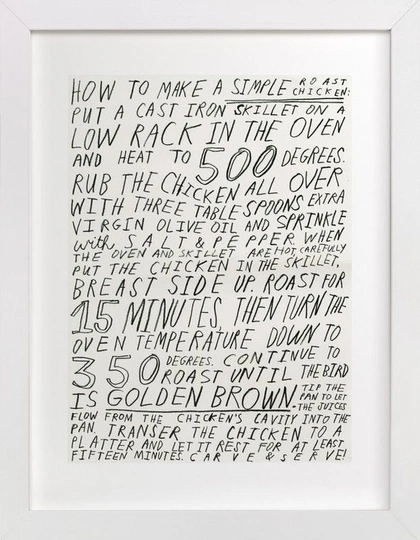 HOW TO MAKE A SIMPLE ROAST CHICKEN:
PUT A CAST IRON SKILLET ON A
LOW RACK IN THE OVEN
AND HEAT TO 500 DEGREES.
RUB THE CHICKEN ALL OVER
WITH THREE TABLESPOONS EXTRA
VIRGIN OLIVE OIL AND SPRINKLE
with SALT & PEPPER. WHEN
THE OVEN AND SKILLET ARE HOT, CAREFULLY
PUT THE CHICKEN IN THE SKILLET,
BREAST SIDE UP. ROAST FOR
15 MINUTES, THEN TURN THE
OVEN TEMPERATURE DOWN TO
350 DEGREES. CONTINUE TO
ROAST UNTIL THE BIRD
IS GOLDEN BROWN TIP THE
PAN TO LET
-THE JUICES
FLOW FROM THE CHICKEN'S CAVITY INTO THE
PAN. TRANSER THE CHICKEN TO A
PLATTER AND LET IT REST FOR AT LEAST
FIFTEEN MINUTES. CARVE & SERVE!